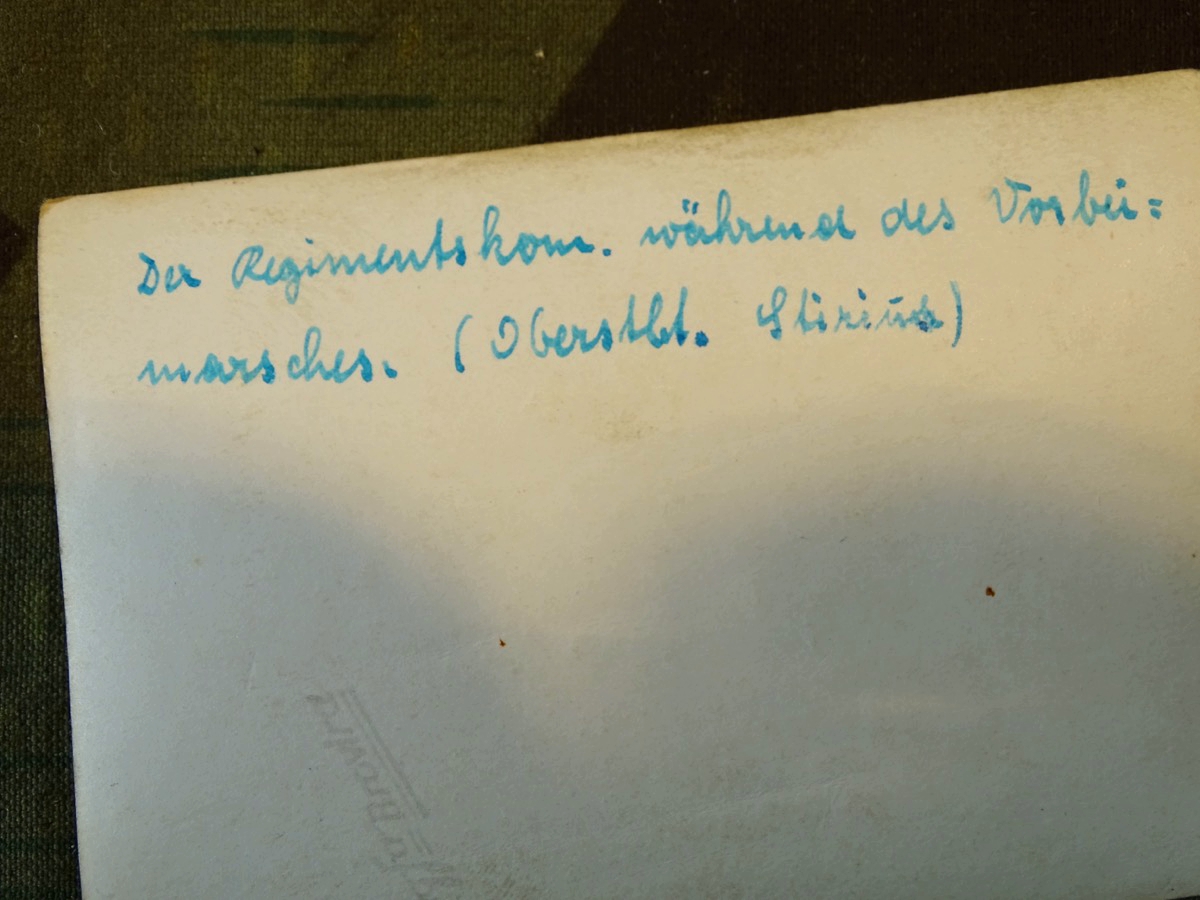 Der Regimentskom. während des Vorbei=
marsches. (Oberstlt.
Mimosa